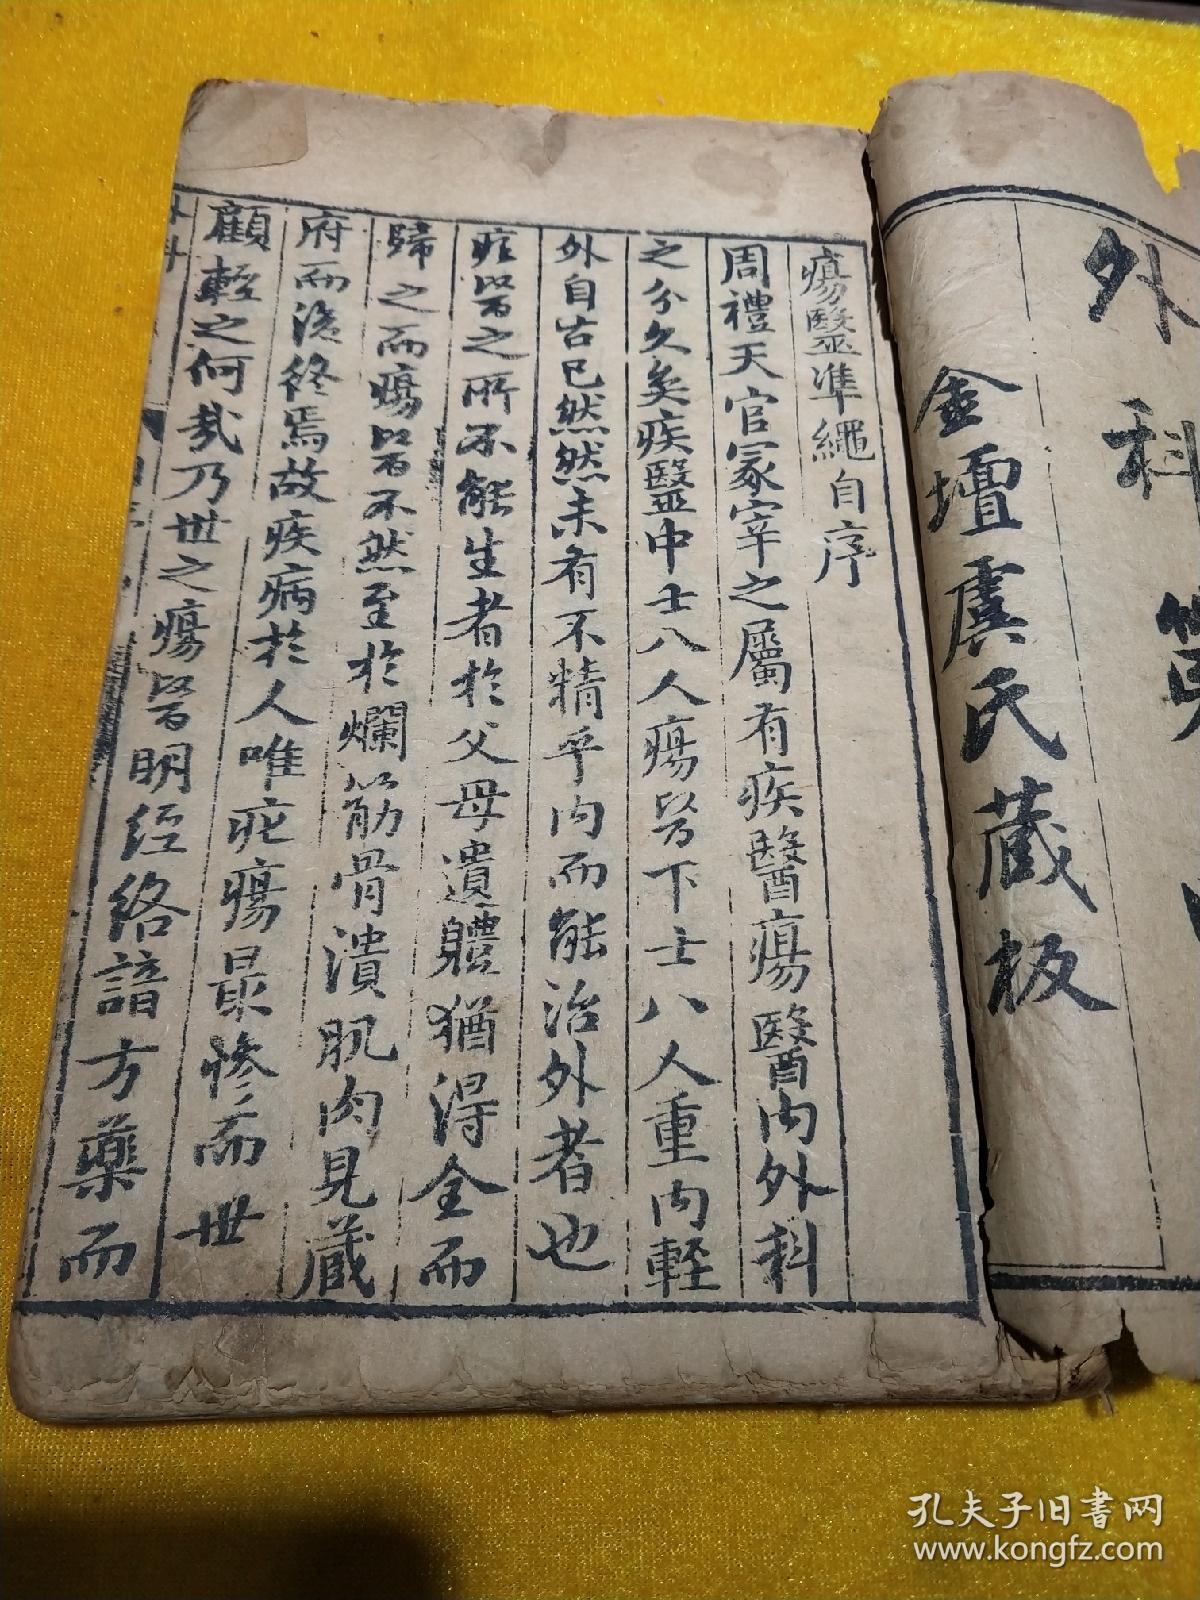 外科
金壇虞氏藏板
瘍醫準繩自序
周禮天官冢宰之屬有疾醫瘍醫内外科
之分久矣疾醫中士八人瘍醫下士八人重内輕
外自古已然然未有不精乎内而能治外者也
症醫之所不能生者於父母遺體猶得全而
歸之而瘍醫不然至於爛筋骨潰肌肉見藏
府而後終焉故疾病於人唯疕瘍最慘而世
顧輕之何哉乃世之瘍醫明經絡諳方藥而
外科
孔夫子旧书网
www.kongfz.com